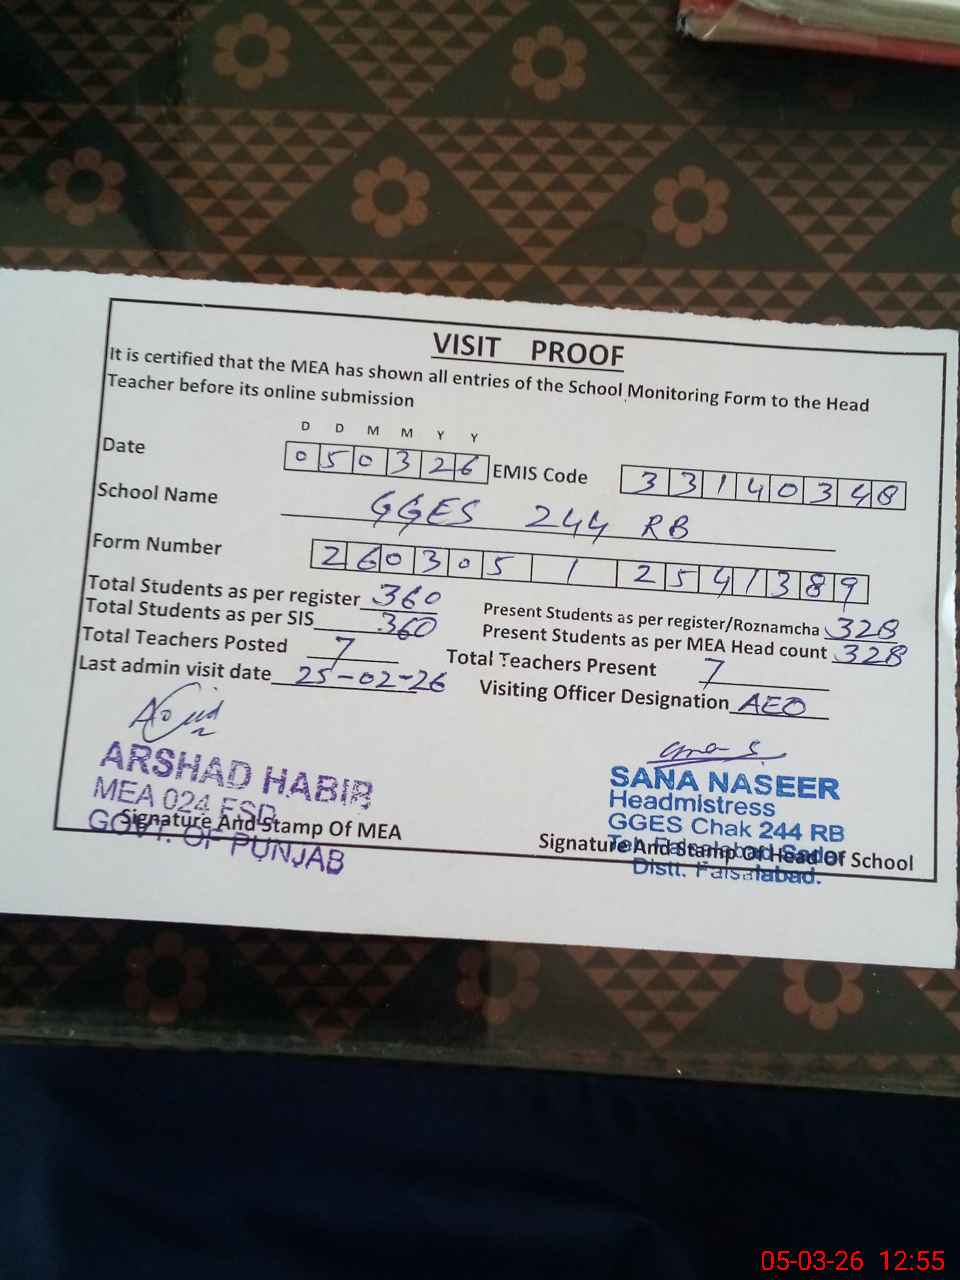 VISIT PROOF
It is certified that the MEA has shown all entries of the School Monitoring Form to the Head
Teacher before its online submission
D D M M Y Y
Date 0 5 0 3 2 6 EMIS Code 3 3 1 4 0 3 4 8
School Name GGES 244 RB
Form Number 2 6 0 3 0 5 1 2 5 4 1 3 8 9
Total Students as per register 360 Present Students as per register/Roznamcha 328
Total Students as per SIS 360 Present Students as per MEA Head count 328
Total Teachers Posted 7 Total Teachers Present 7
Last admin visit date 25-02-26 Visiting Officer Designation AEO
ARSHAD HABIB
MEA 024 FSD
GOVT. OF PUNJAB
Signature And Stamp Of MEA
SANA NASEER
Headmistress
GGES Chak 244 RB
Teh. Faisalabad Sader
Distt. Faisalabad.
Signature And Stamp Of Head Of School
05-03-26 12:55